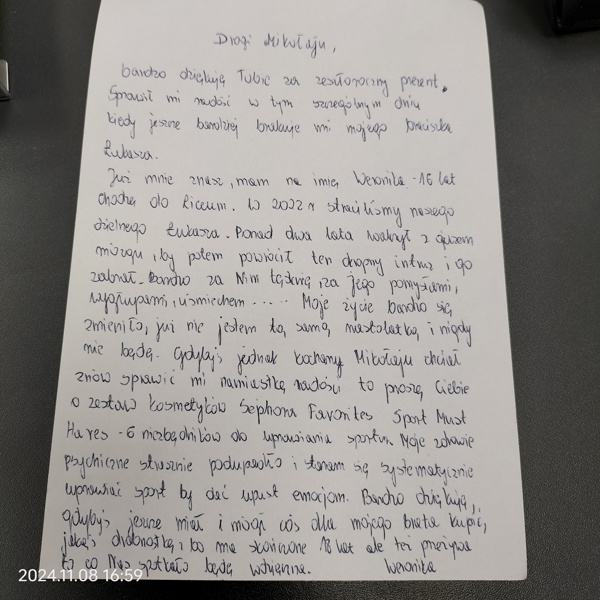 Drogi Mikołaju,
bardzo dziękuję Tobie za zeszłoroczny prezent.
Sprawił mi radość w tym szczególnym dniu
kiedy jeszcze bardziej brakuje mi mojego braciszka
Łukasza.
Już mnie znasz, mam na imię Weronika - 16 lat
chodzę do Liceum. W 2022 r straciliśmy naszego
dzielnego Łukasza. Ponad dwa lata walczył z guzem
mózgu, by potem powrócił ten okropny intruz i go
zabrał. Bardzo za Nim tęsknię, za jego pomysłami,
wygłupami, uśmiechem ..... Moje życie bardzo się
zmieniło, już nie jestem tą samą nastolatką i nigdy
nie będę. Gdybyś jednak kochany Mikołaju chciał
znów sprawić mi namiastkę radości to proszę Ciebie
o zestaw kosmetyków Sephora Favorites Sport Must
Haves - 6 niezbędników do uprawiania sportu. Moje zdrowie
psychiczne strasznie podupadło i staram się systematycznie
uprawiać sport by dać upust emocjom. Bardzo dziękuję,
gdybyś jeszcze miał i mógł coś dla mojego brata kupić,
jakąś drobnostkę, bo ma skończone 18 lat ale też przeżywa
to co Nas spotkało będę wdzięczna. Weronika
2024.11.08 16:59